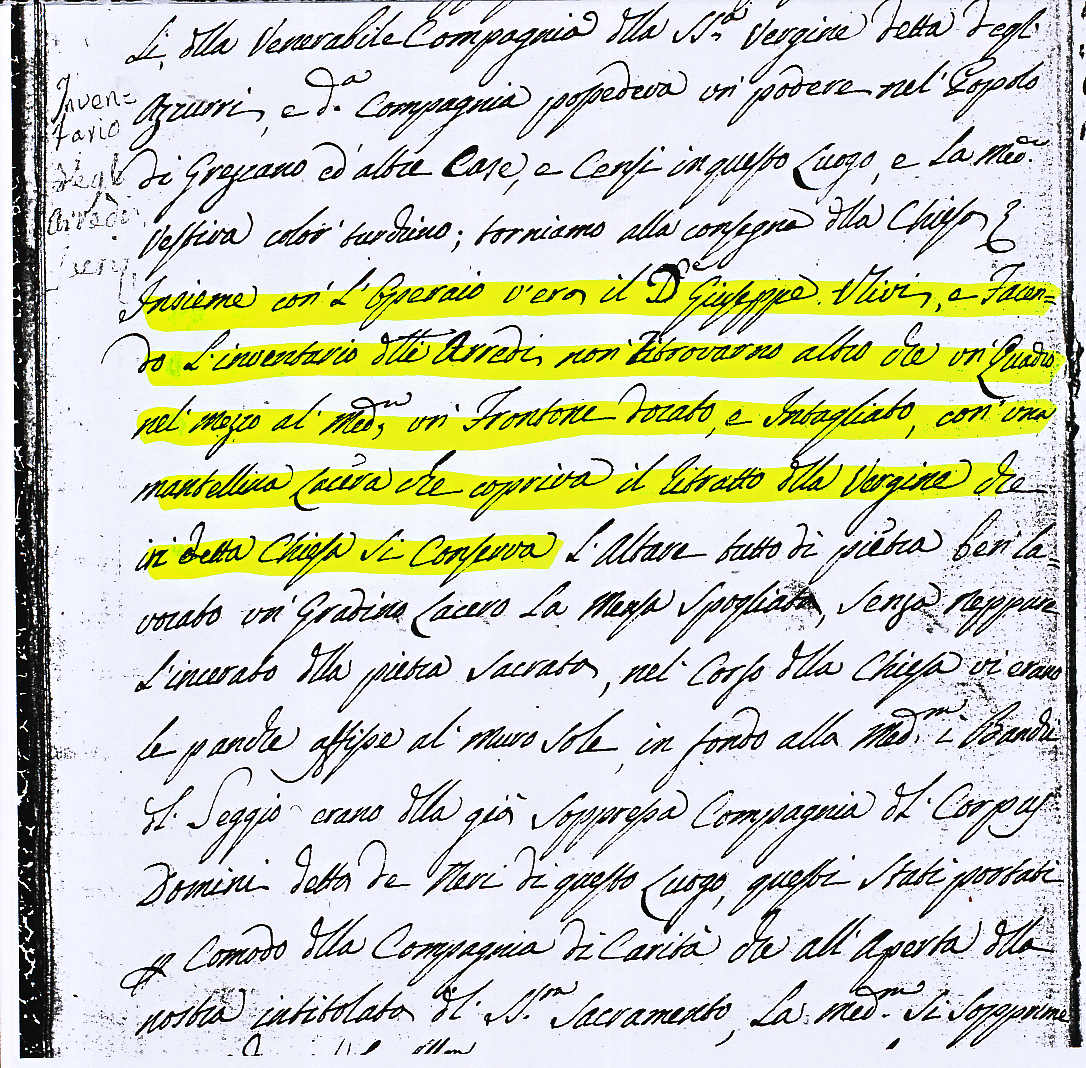 Li, dlla Venerabile Compagnia dlla SS.a Vergine detta degli
Inven=
tario
degli
Arredi
Azzurri, e d.a Compagnia possedeva un' podere nel' Popolo
di Gressano ed' altre Case, e Censi in questo Luogo, e La med.
Vestiva color' turchino; torniamo alla consegna dlla Chiesa
Insieme con' L'Operaio v'era il D.re Giuseppe Ulivi, e Facen=
do L'inventario dlli Arredi, non' Ritrovarno altro che un' Quadro
nel' mezzo al' med.m un' Frontone dorato, e Intagliato, con' una
mantellina Lacera che copriva il Ritratto dlla Vergine che
in' detta Chiesa si Conserva L'Altare tutto di pietra ben' la=
vorato un' Gradino Lacero La Mensa Spogliata, senza neppure
L'incerato dlla pietra Sacrata, nel' Corso dlla Chiesa vi erano
le panche affisse al' muro sole, in fondo alla Med.m i Banchi
dl' Seggio erano dlla già Soppressa Compagnia dl' Corpus
Domini detta de Neri di questo Luogo, questi Stati portati
p Comodo dlla Compagnia di Carità che all' Aperta dlla
nostra intitolata dl' SS.mo Sacramento, La med.m si Soppresse